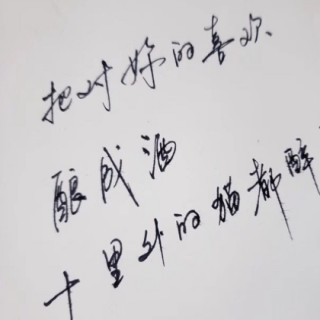 把对你的喜欢
酿成酒
十里外的猫都醉